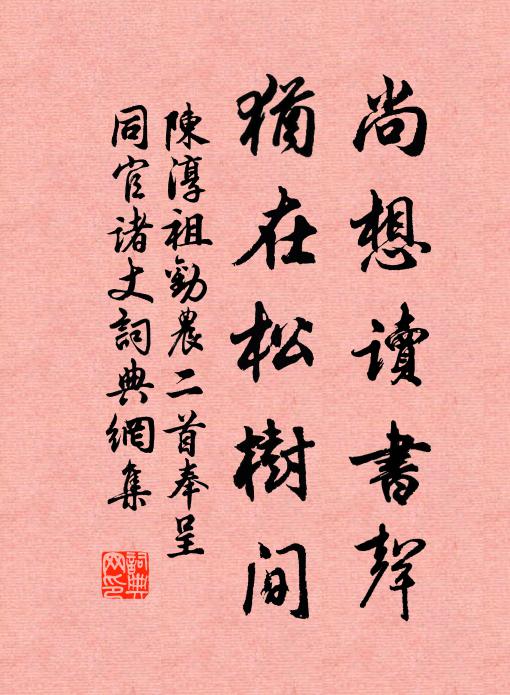 尚想讀書聲
猶在松樹间
陳淳祖勸農二首奉呈
同官諸丈詞典網集
詞典
网印